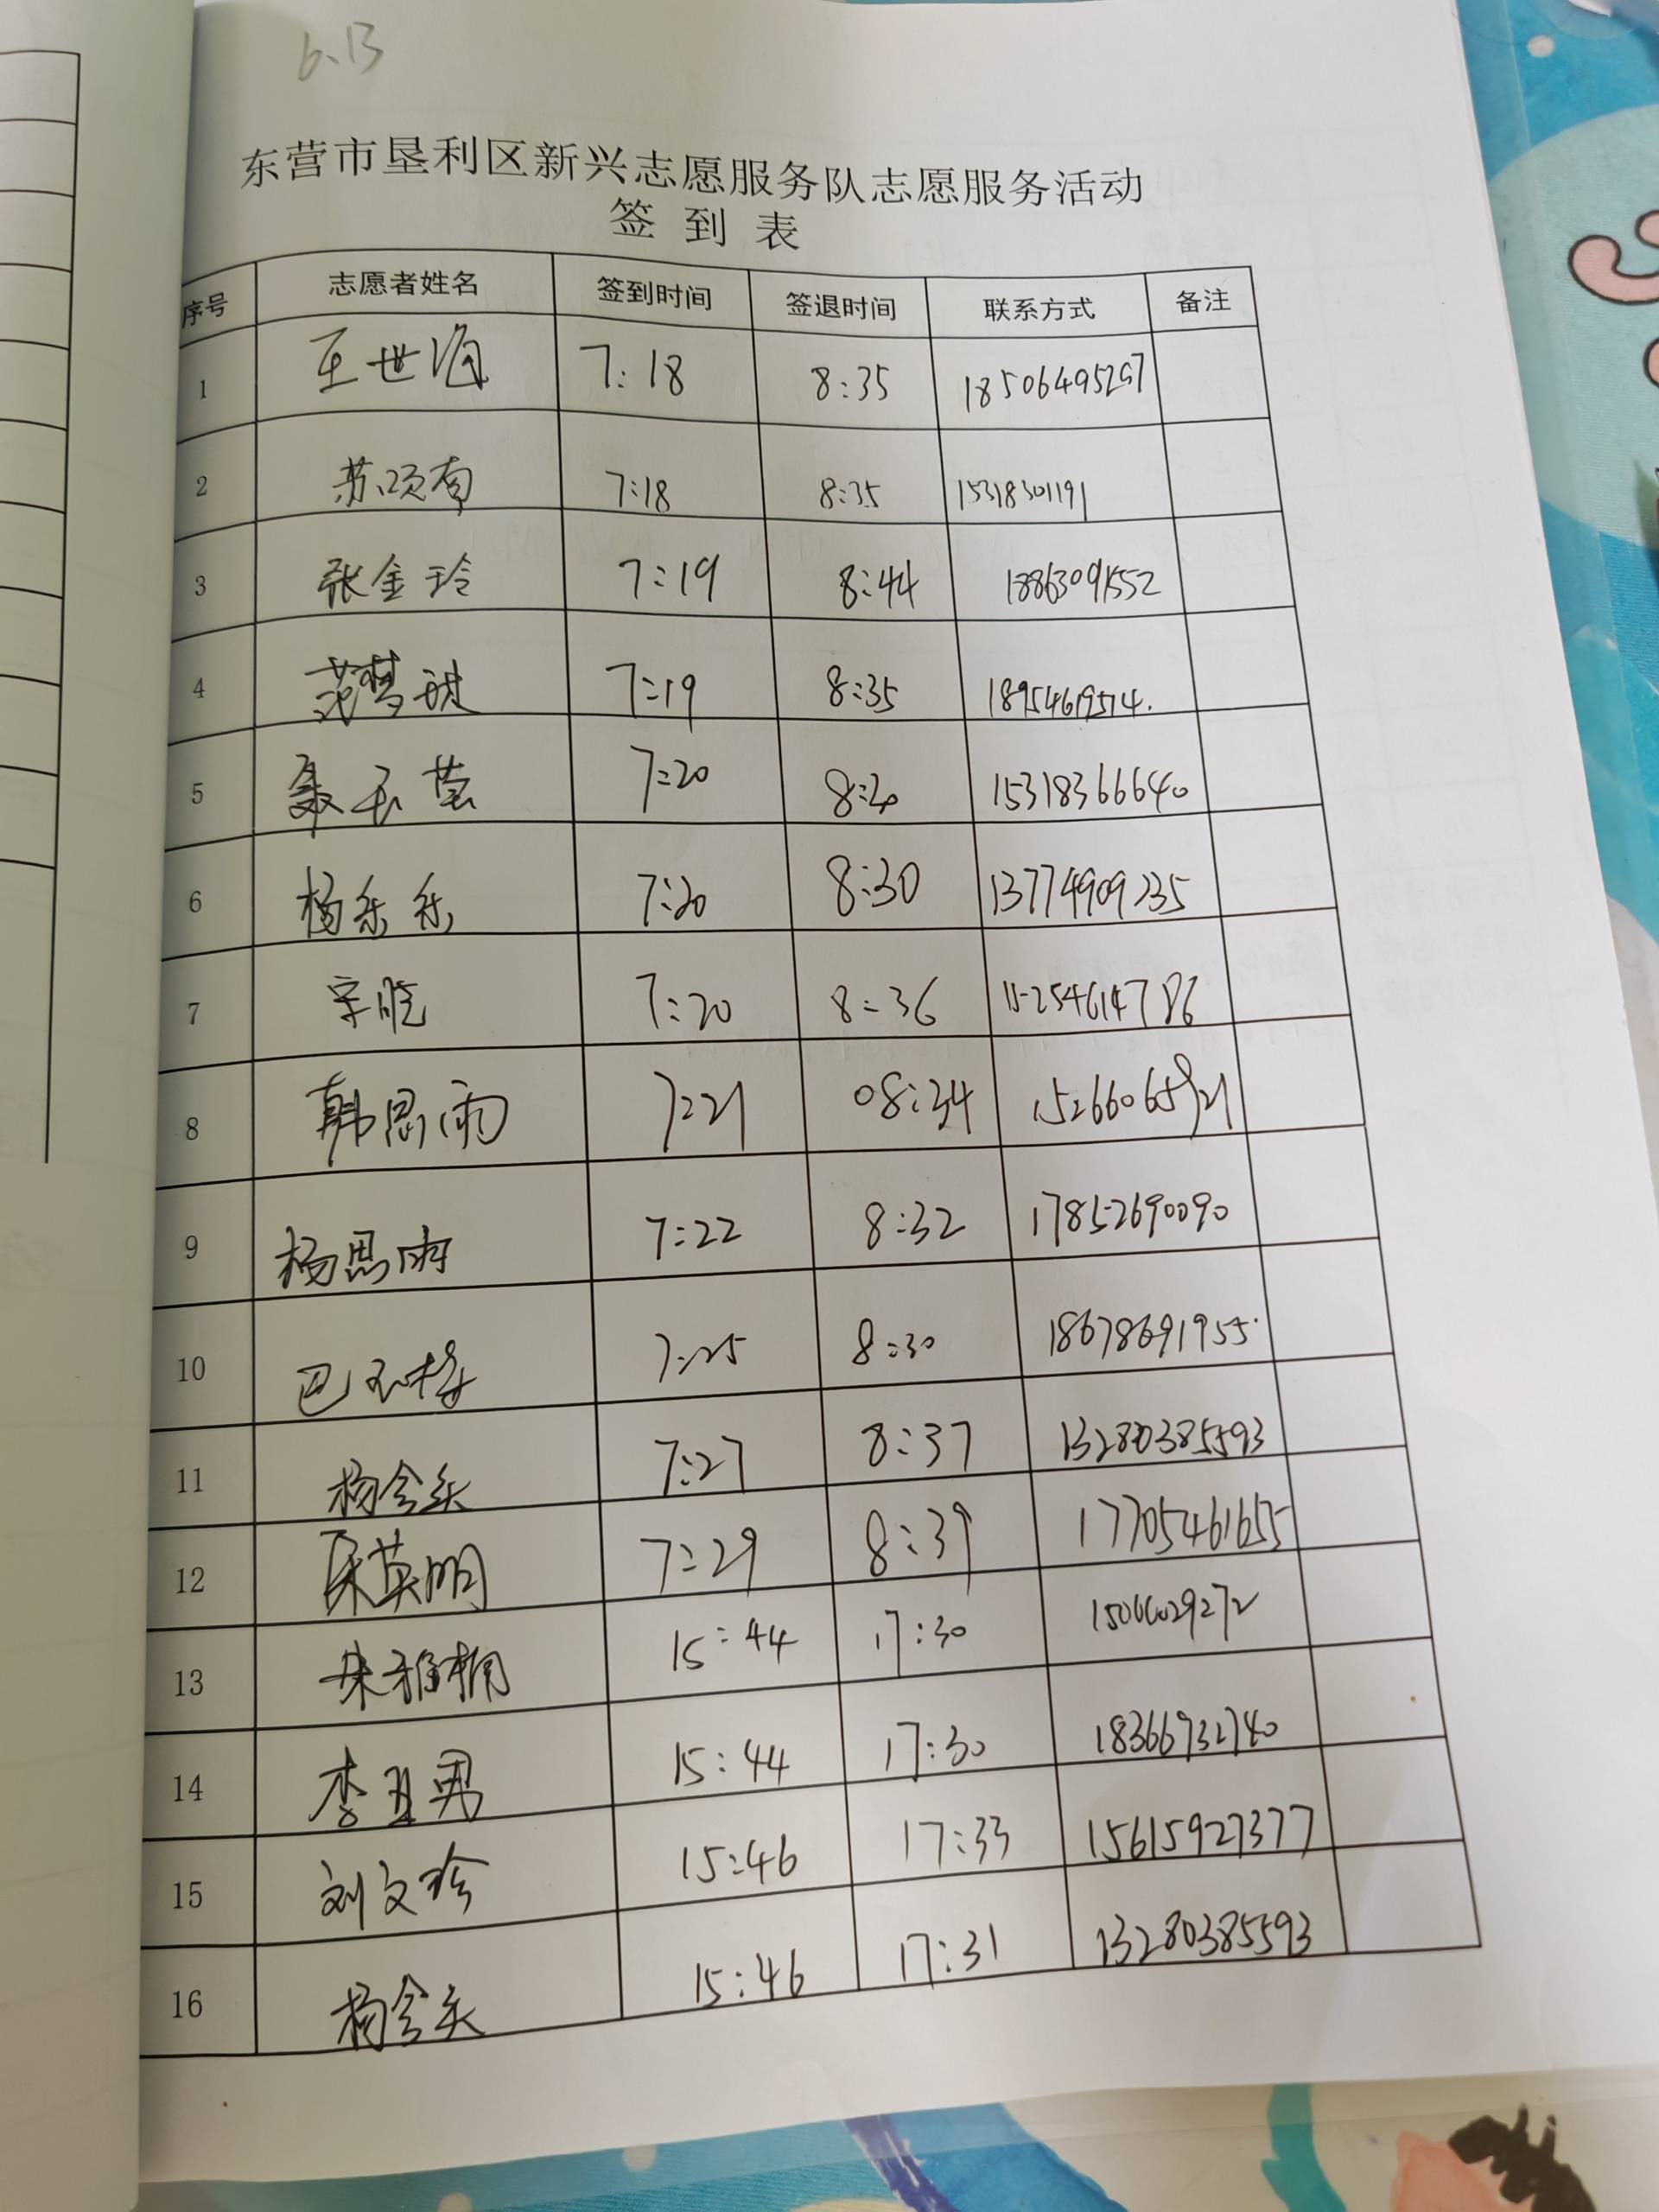 6.13
东营市垦利区新兴志愿服务队志愿服务活动
签到表
序号 志愿者姓名 签到时间 签退时间 联系方式 备注
1 王世海 7:18 8:35 18506495257
2 苏颂有 7:18 8:35 15318301191
3 张金玲 7:19 8:44 18863091552
4 范梦 7:19 8:35 18954619514.
5 聂玉莹 7:20 8:20 15318366640
6 杨乐乐 7:20 8:30 13774909235
7 宋晓 7:20 8:36 15254614786
8 韩思雨 7:21 08:34 15266065921
9 杨思雨 7:22 8:32 17852690090
10 巴玉 7:25 8:30 18678691955.
11 杨会乐 7:27 8:37 13280385593
12 英明 7:29 8:39 17705461655
13 朱雅楠 15:44 17:30
14 李亚男 15:44 17:30 18366932740
15 刘文珍 15:46 17:33 15615927377
16 杨会乐 15:46 17:31 13280385593